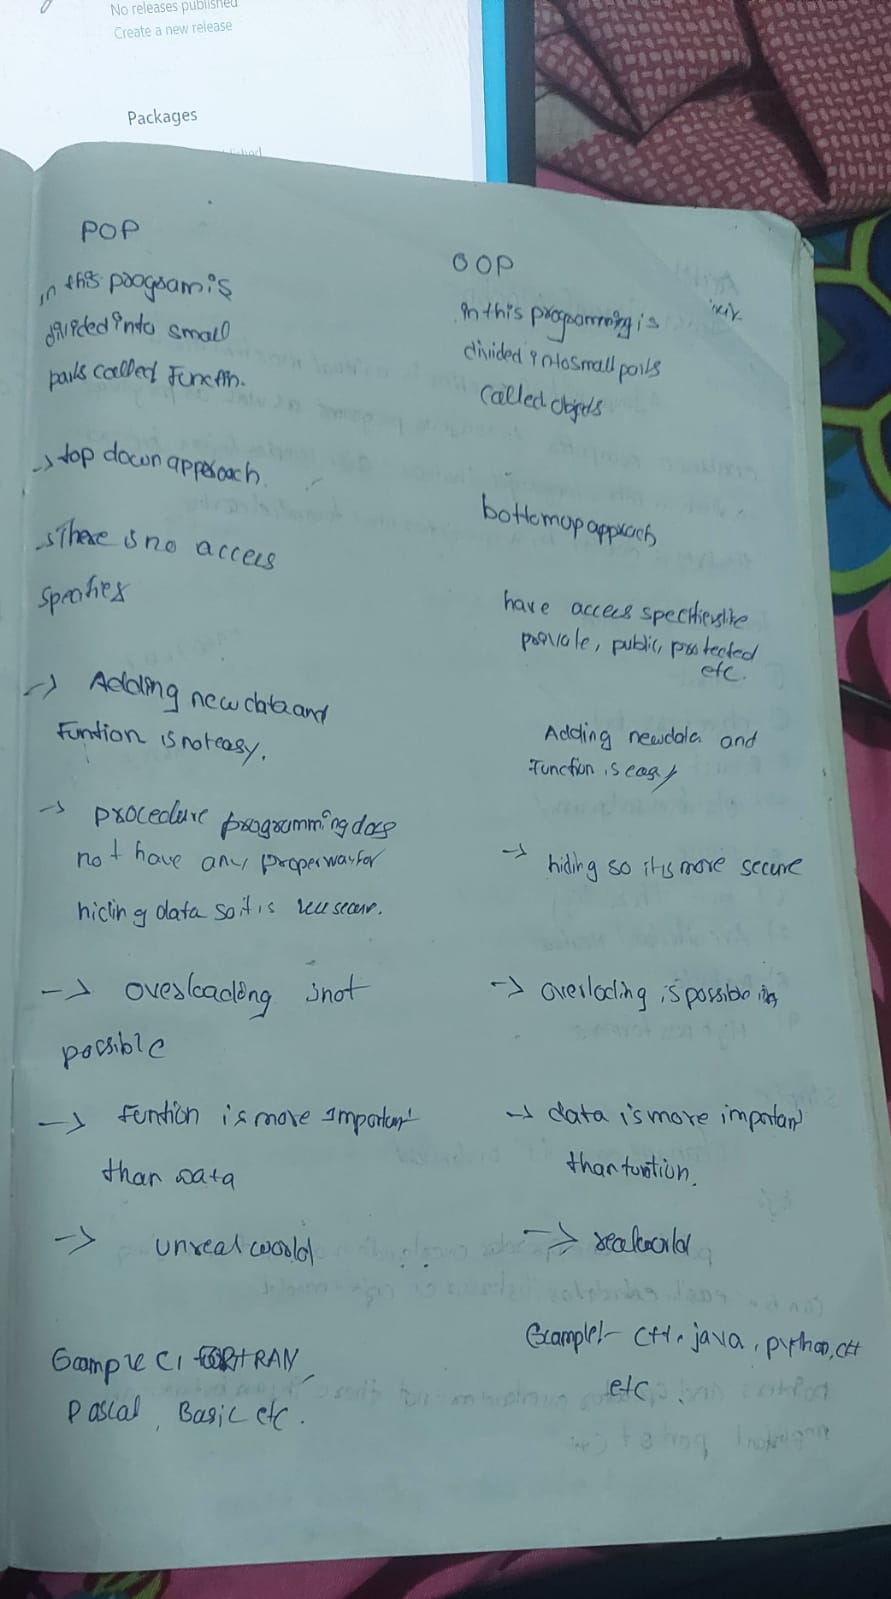 No releases published
Create a new release
Packages
POP
in this program is
divided into small
parts called Function.
→ top down approach.
→ There is no access
specifier
→ Adding new data and
Funtion is not easy.
→ procedure programming does
not have any proper way for
hiding data so it is less secure.
→ overloading is not
possible
→ funtion is more important
than data
→ unreal world
Example C, FORTRAN,
Pascal, Basic etc.
OOP
in this programming is
divided into small parts
called objects
bottom up approach
have access specifiers like
private, public, protected
etc.
Adding new data and
function is easy
→ hiding so it is more secure
→ overloding is possible in
→ data is more important
than funtion.
→ real world
Example:- C++, java, python, C#
etc.